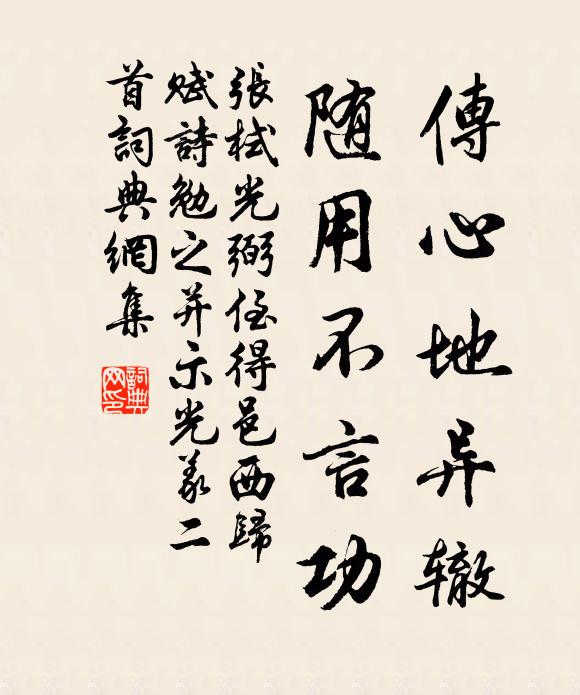 傳心地异辙
随用不言功
張栻光弼侄得邑西歸
赋詩勉之并示光義二
首詞典網集
詞典网印